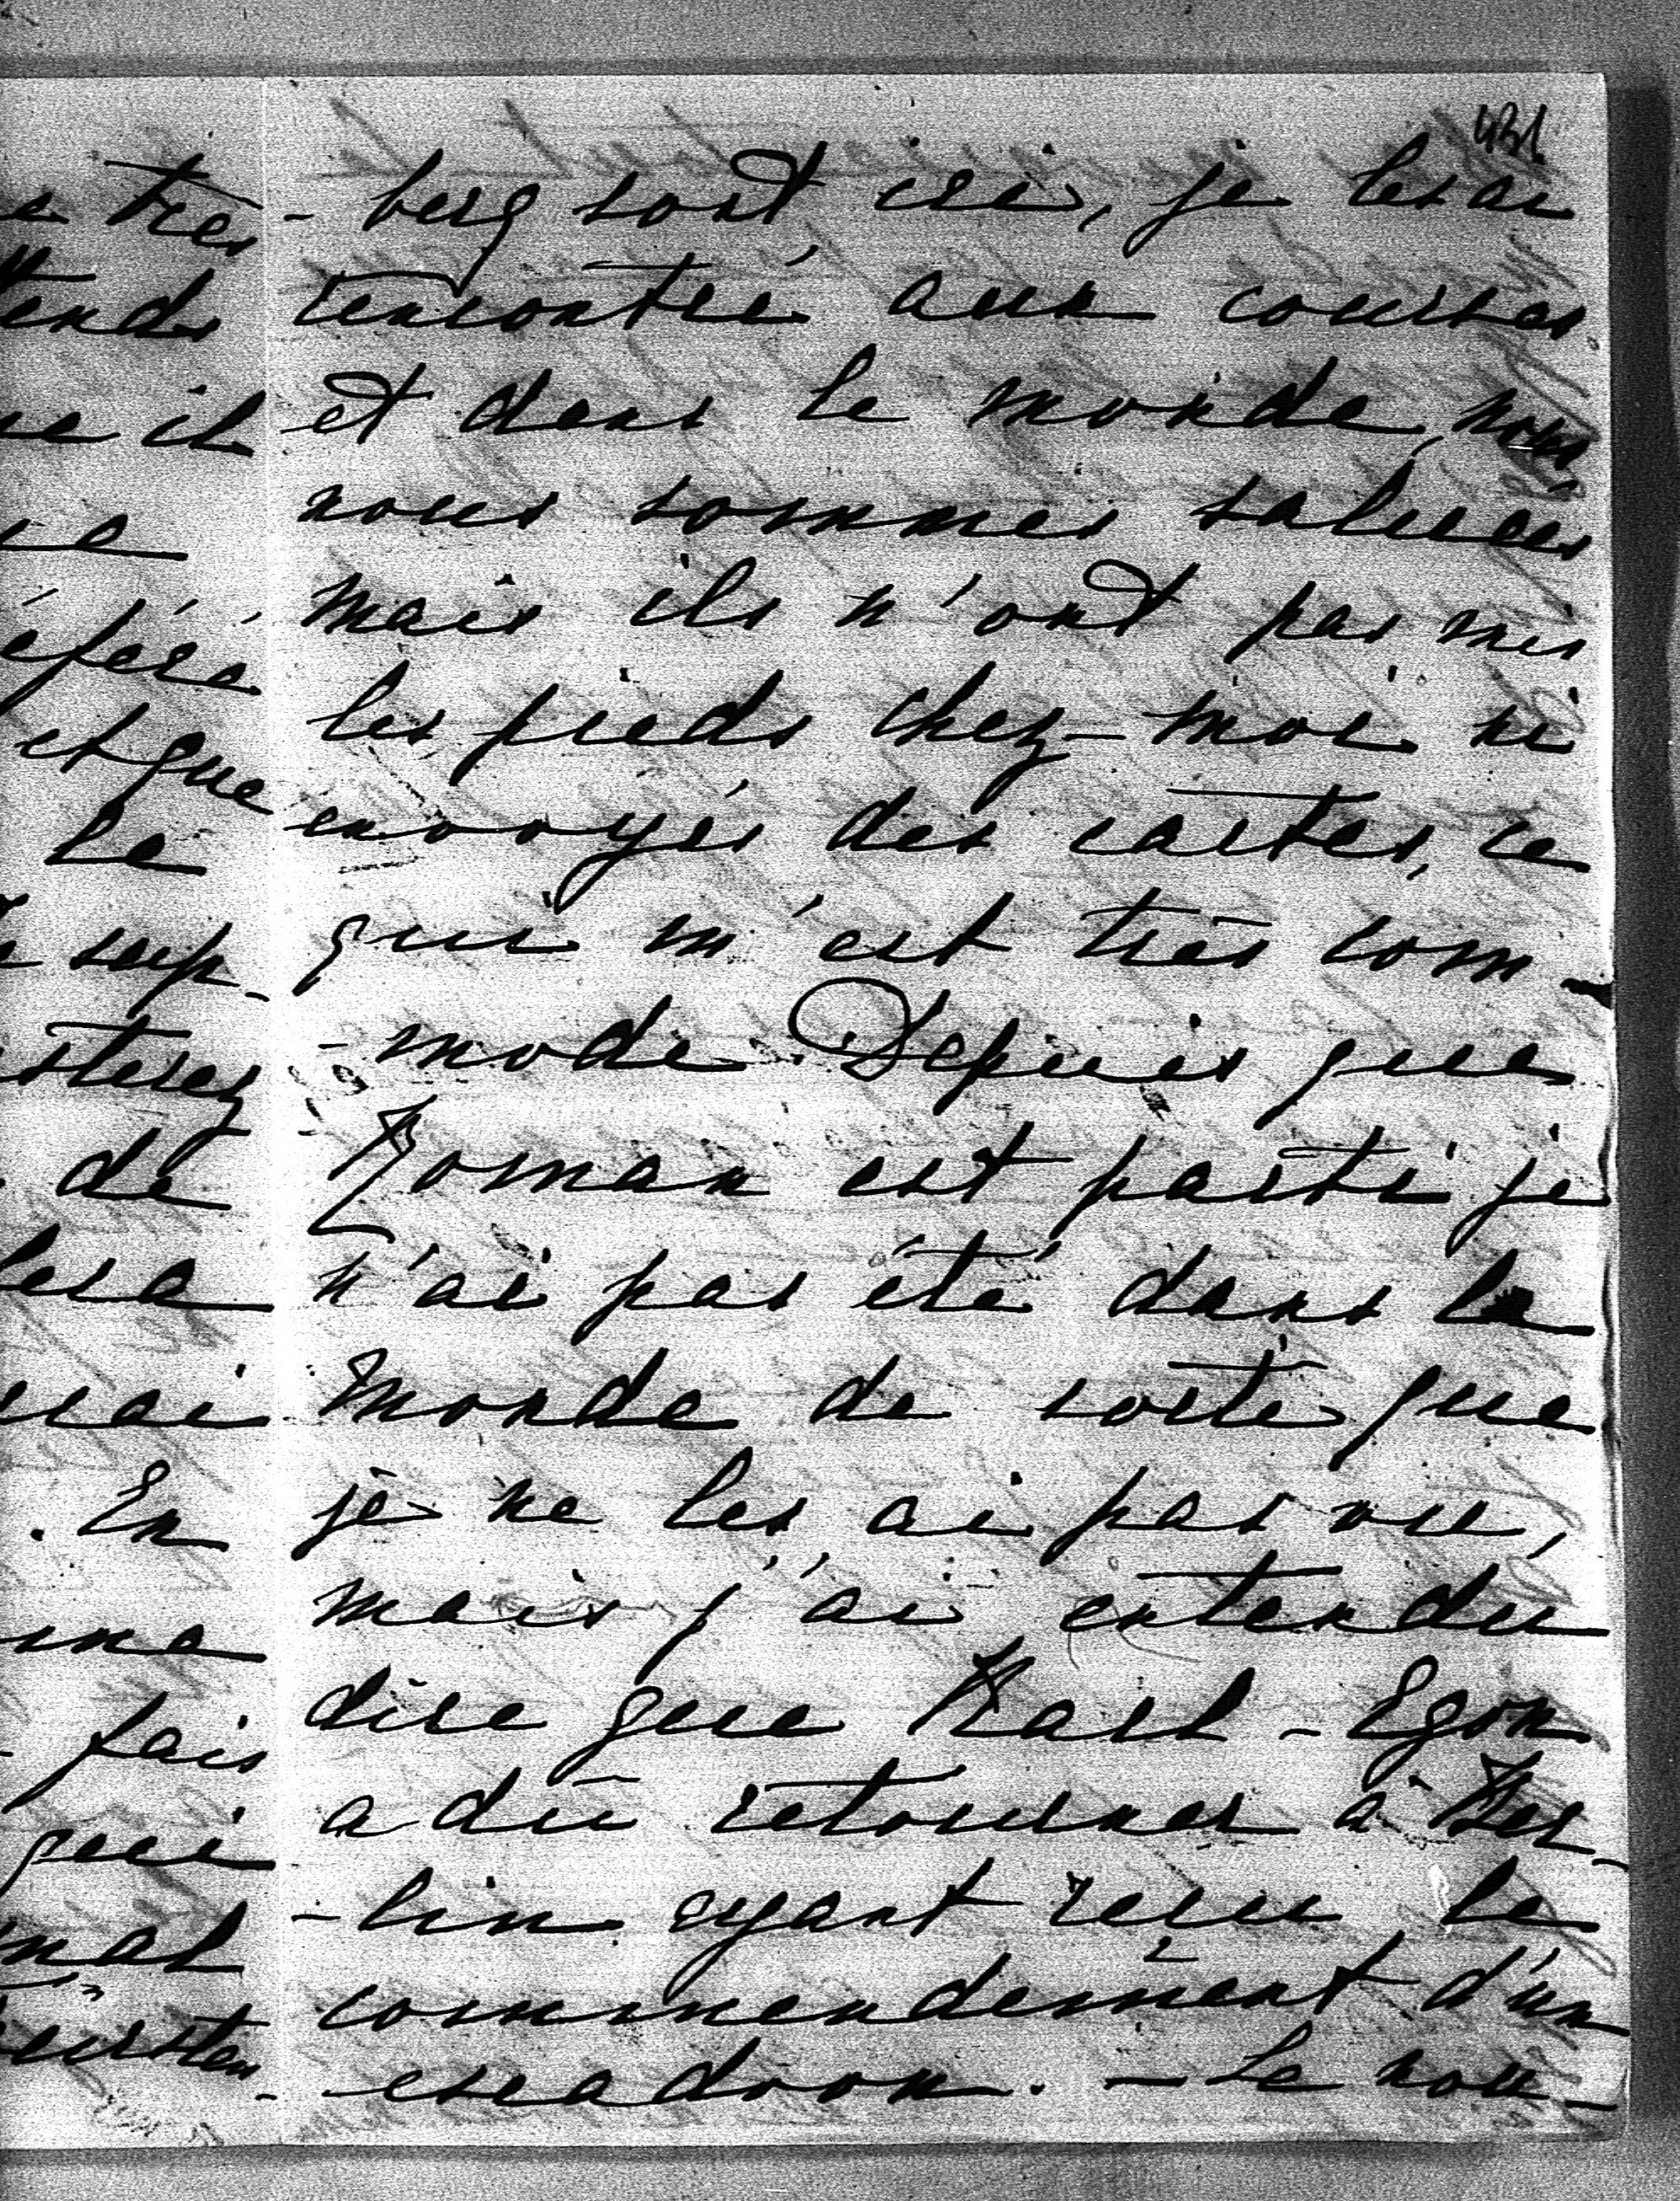 431
-berg sont ici, je les ai
rencontré aux courses
et dans le monde, nous
nous sommes saluées
mais ils n'ont pas mis
les pieds chez-moi ni
envoyés des cartes, ce
qui m'est très com-
-mode. Depuis que
Roman est parti je
n'ai pas été dans le
monde de sorte que
je ne les ai pas vu,
mais j'ai entendu
dire que Karl-Egon
a dû retourner à Ber-
-lin ayant reçu le
commendement d'un
escadron. - Le nou-
très
tends
il
éféré
et que
le
sup-
isterez
de
lesa
. En
fais
qui
mal